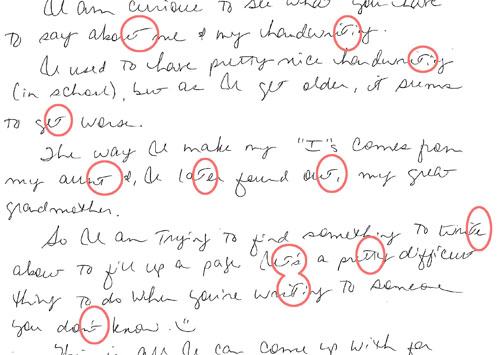 I am curious to see what you have
to say about me & my handwriting.
I used to have pretty nice handwriting
(in school), but as I get older, it seems
to get worse.
The way I make my "I"s comes from
my aunt &, I later found out, my great
grandmother.
So I am trying to find something to write
about to fill up a page. It's a pretty difficult
thing to do when you're writing to someone
you don't know. ☺
This is all I can come up with for